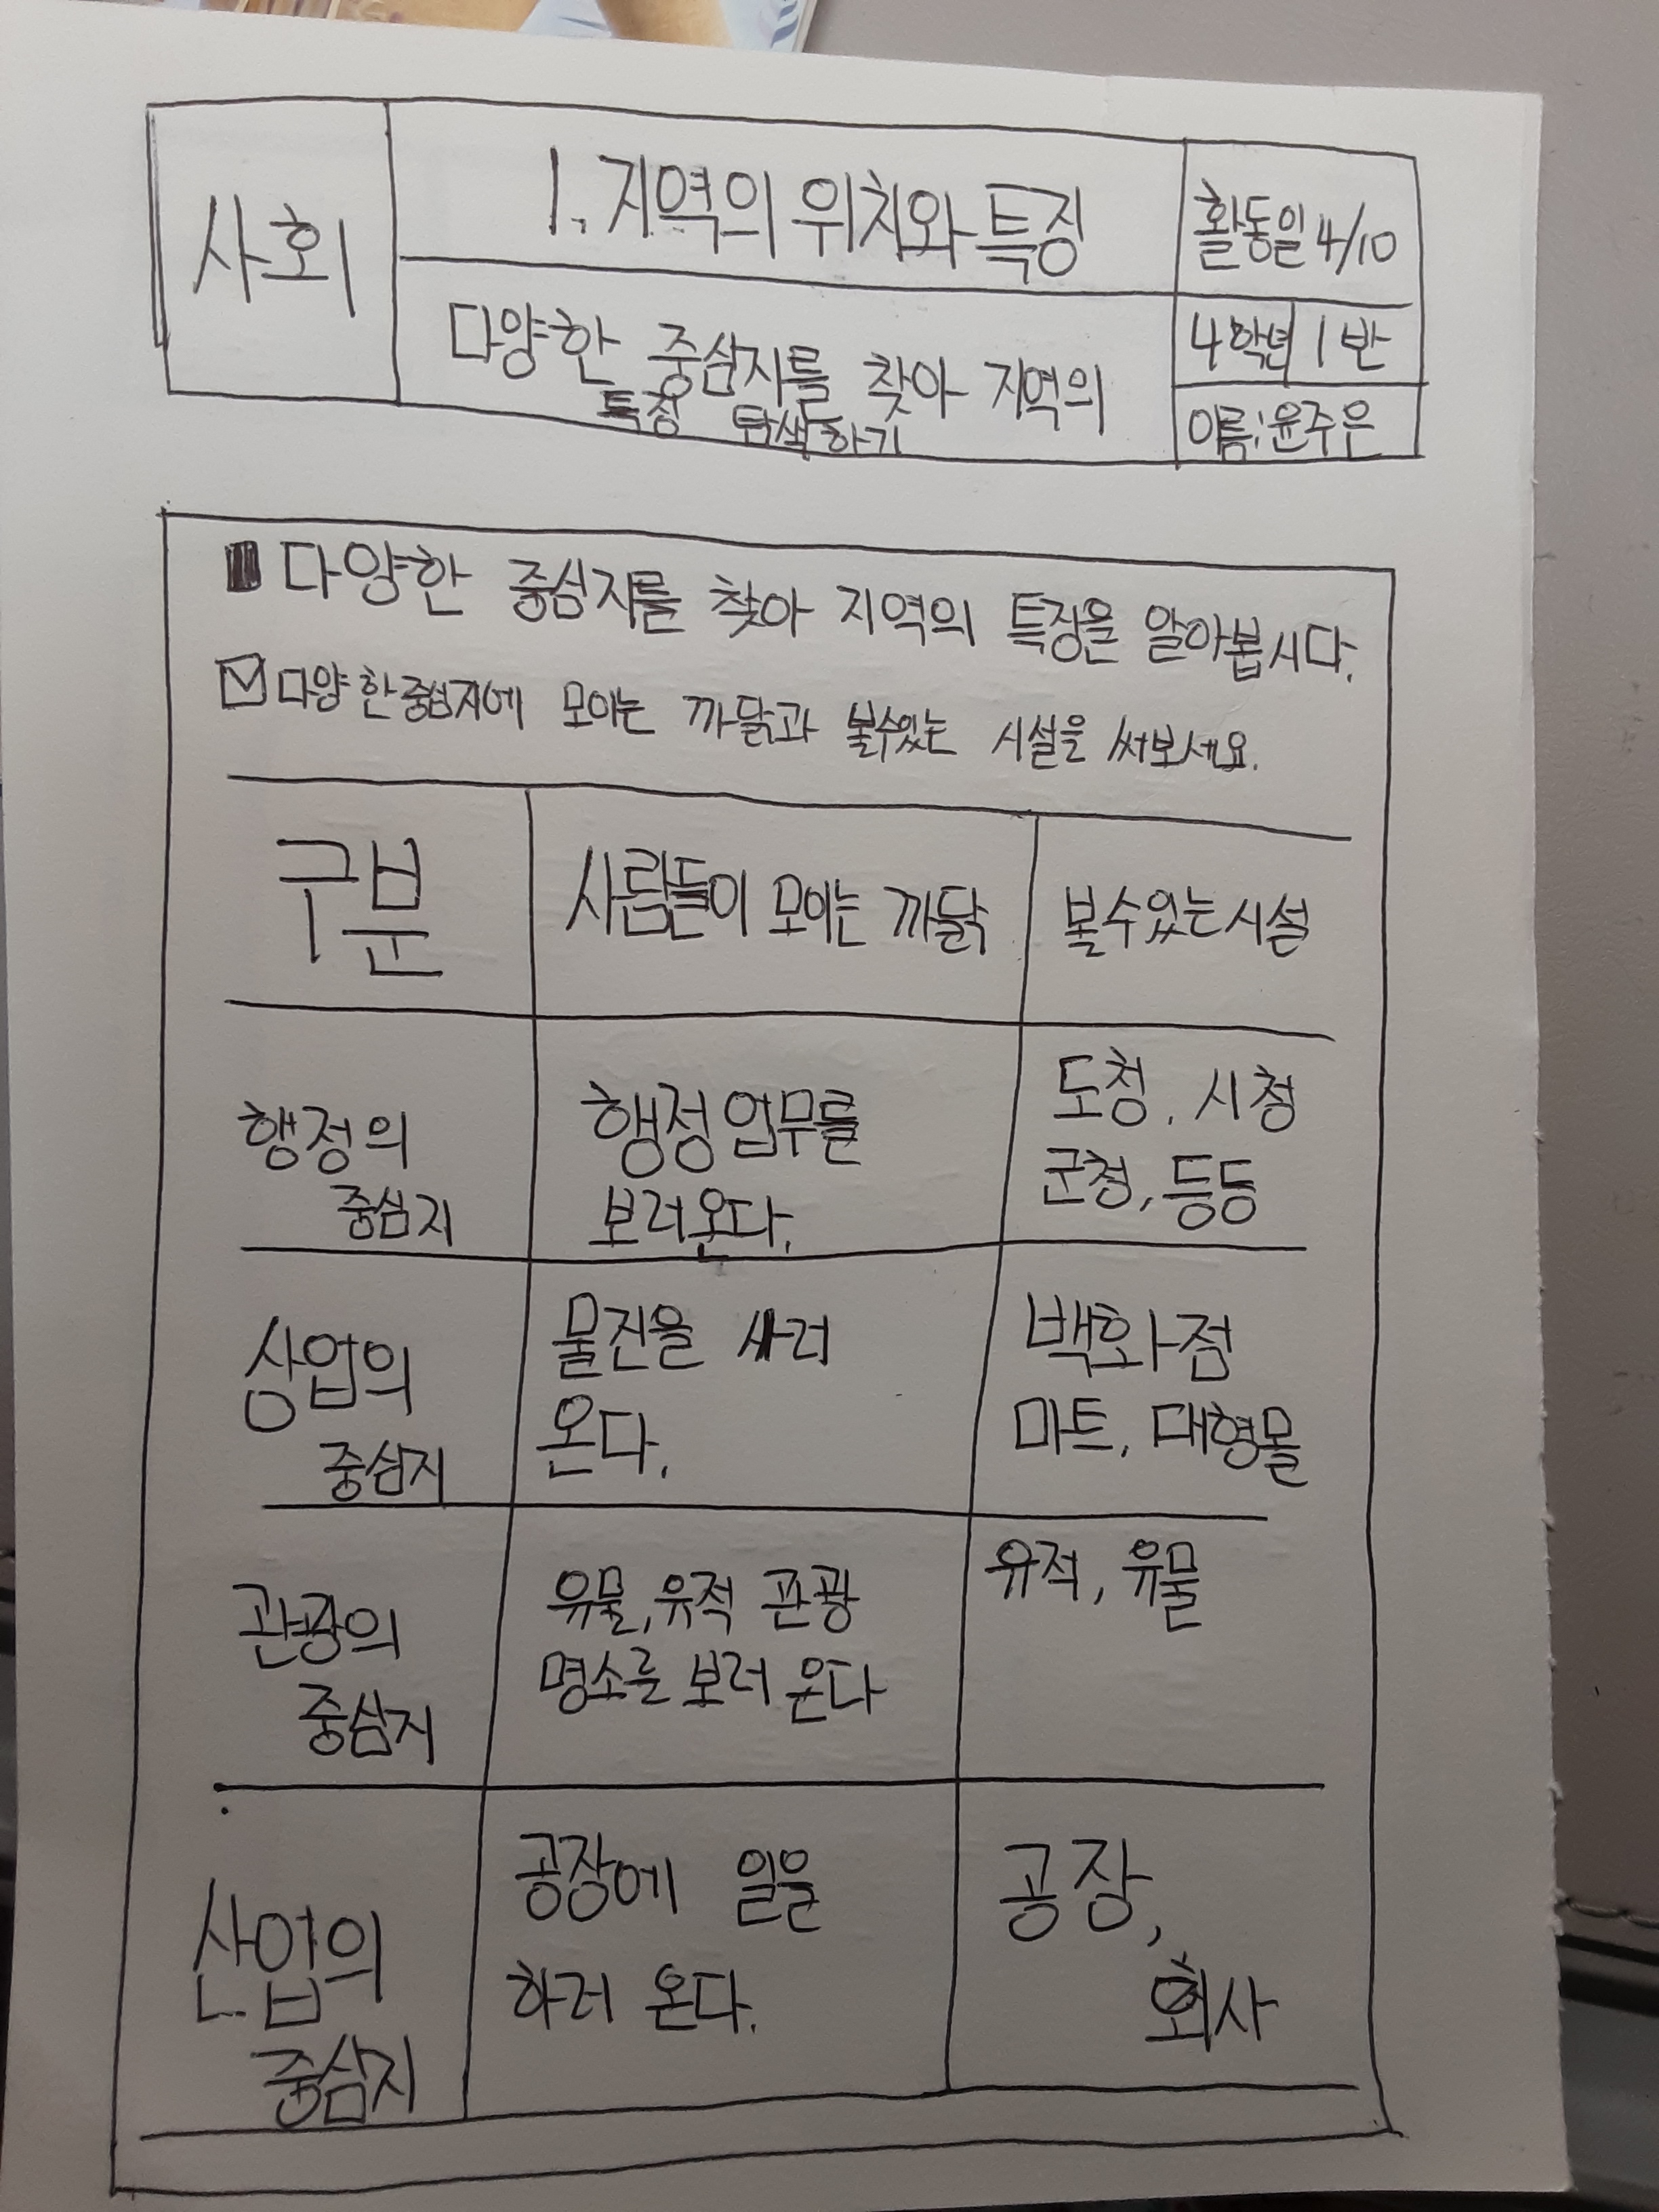 사회
1. 지역의 위치와 특징
다양한 중심지를 찾아 지역의
특징 탐색하기
활동일 4/10
4학년 1반
이름: 윤주은
다양한 중심지를 찾아 지역의 특징을 알아봅시다.
다양한중심지에 모이는 까닭과 볼수있는 시설을 써보세요.
구분
사람들이 모이는 까닭
볼수있는시설
행정의
중심지
행정 업무를
보러온다.
도청, 시청
군청, 등등
상업의
중심지
물건을 사러
온다.
백화점
마트, 대형몰
관광의
중심지
유물, 유적 관광
명소를 보러 온다
유적, 유물
산업의
중심지
공장에 일을
하러 온다.
공장,
회사